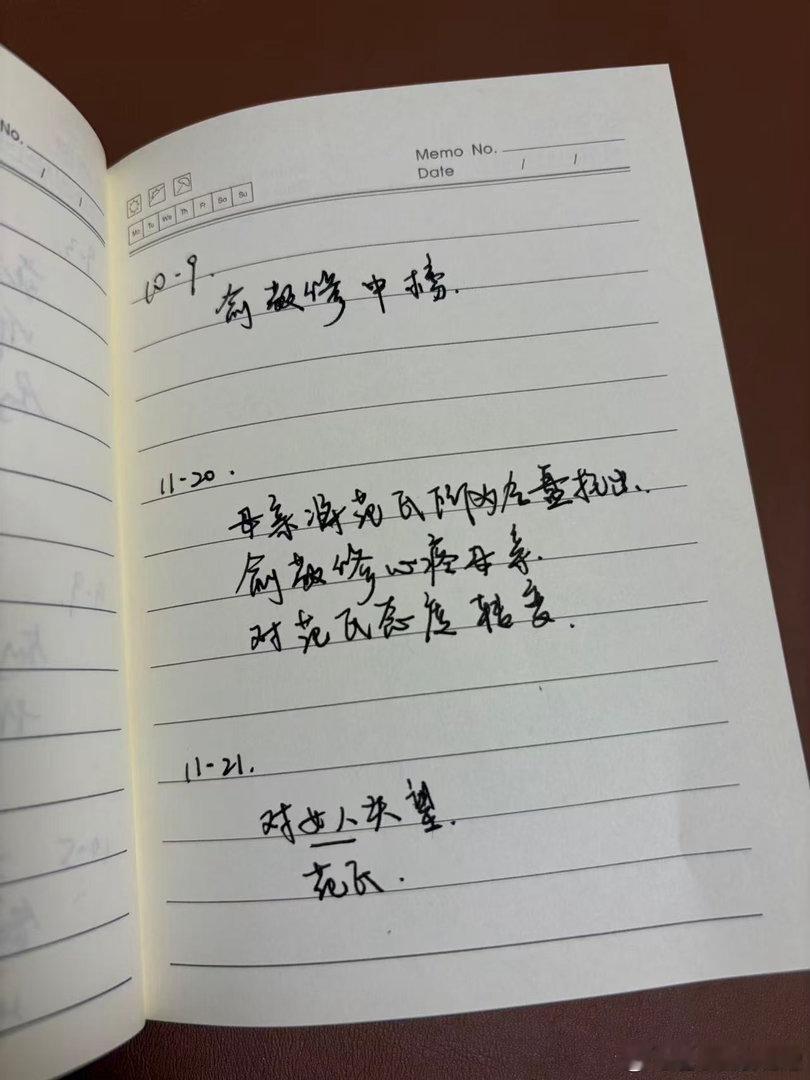 No.
/ /
Memo No.
Date / /
Mo Tu We Th Fr Sa Su
10-9.
俞敬修中榜.
11-20.
母亲将范氏陪的压
俞敬修心疼母亲.
对范氏态度转变.
11-21.
对女人失望.
范氏.